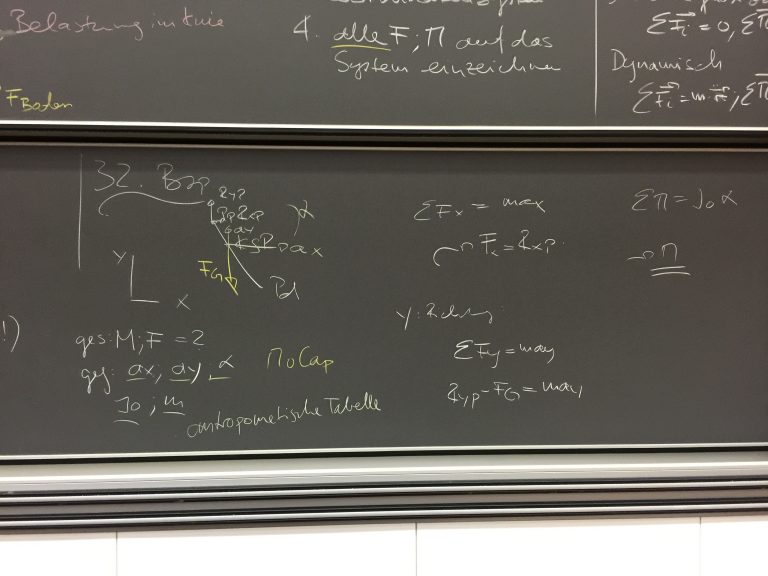 Belastung im Knie
F Boden
4. alle F; M auf das
System einzeichnen
ΣFi = 0, Σ
Dynamisch
ΣFi = m · r̈; Σ
32. Bsp
Ryp
ay
ax
α
FG
Pd
y
x
ges: M; F = ?
geg: ax, ay, α
MoCap
Jo; m
antropometische Tabelle
ΣFx = max
Fx = Rxp
y-Richtung:
ΣFy = may
Ryp - FG = may
ΣM = Jo α
→ M
!)